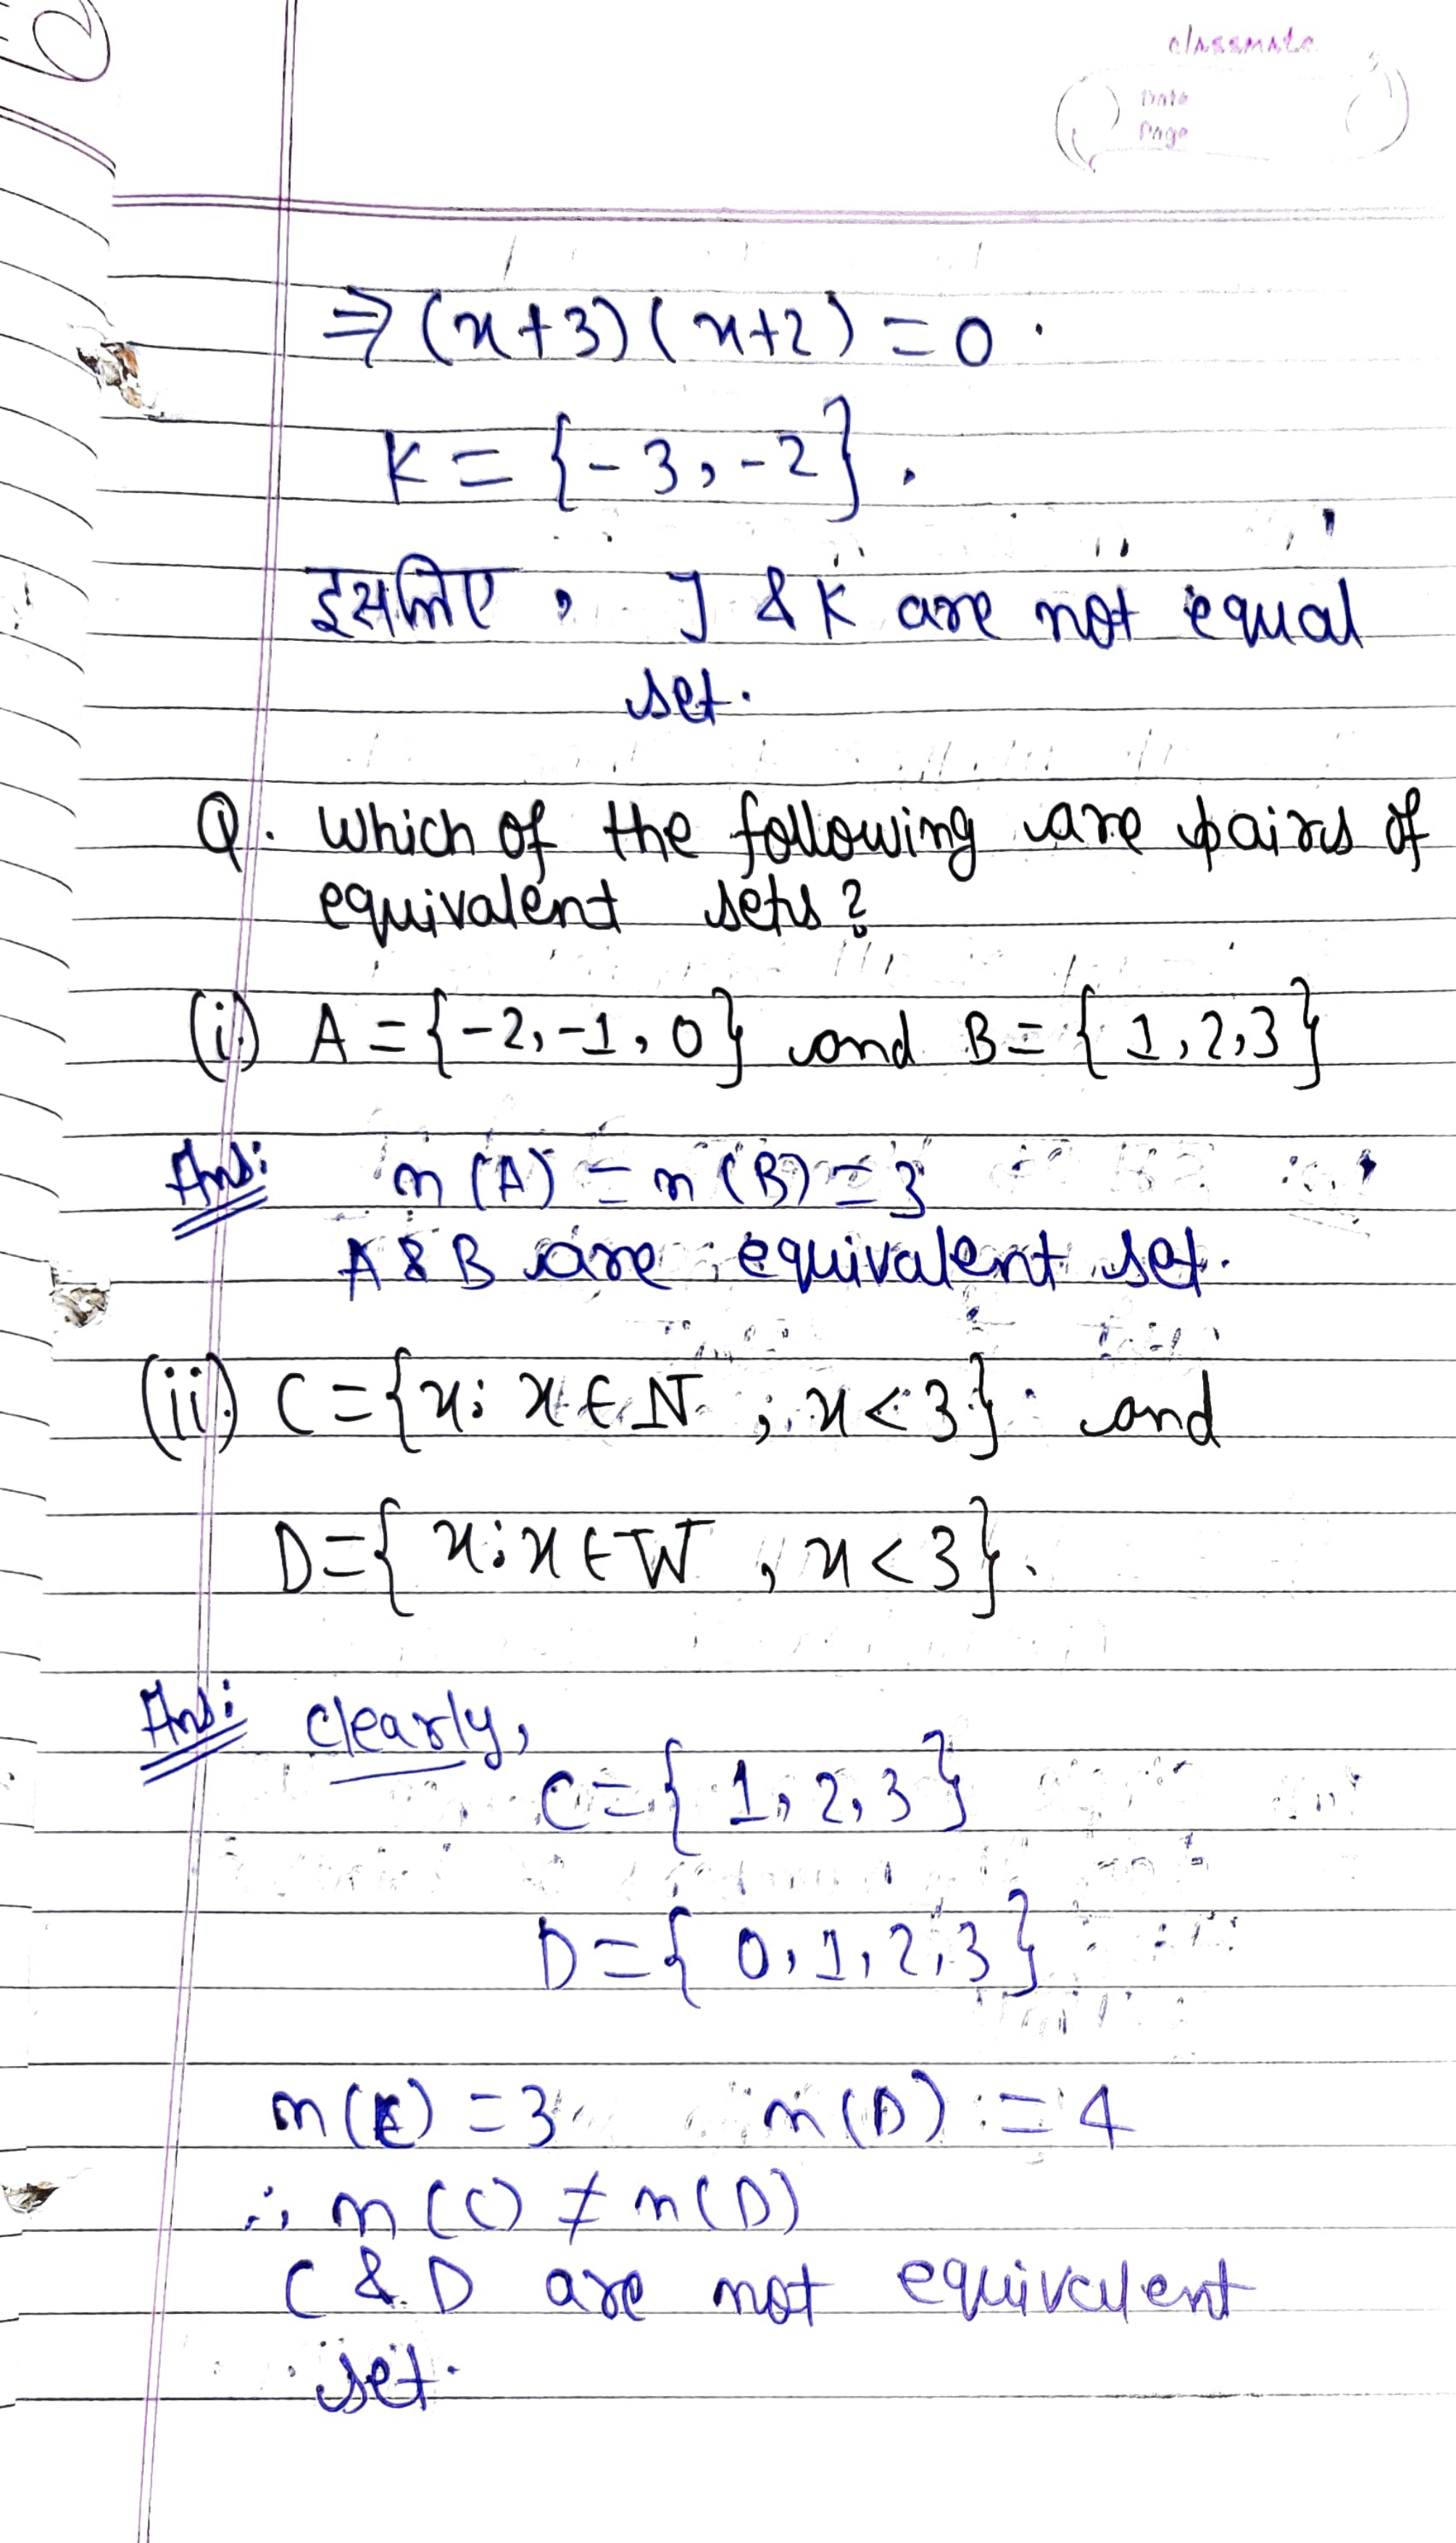 classmate
Date
Page
⇒ (x+3)(x+2) = 0.
K = {-3, -2}.
इसलिए, J & K are not equal
set.
Q. Which of the following are pairs of
equivalent sets?
(i) A = {-2, -1, 0} and B = {1, 2, 3}
Ans: n(A) = n(B) = 3
A & B are equivalent set.
(ii) C = {x: x ∈ N ; x < 3} and
D = {x: x ∈ W , x < 3}.
Ans: Clearly,
C = {1, 2, 3}
D = {0, 1, 2, 3}
n(C) = 3 n(D) = 4
∴ n(C) ≠ n(D)
C & D are not equivalent
set.